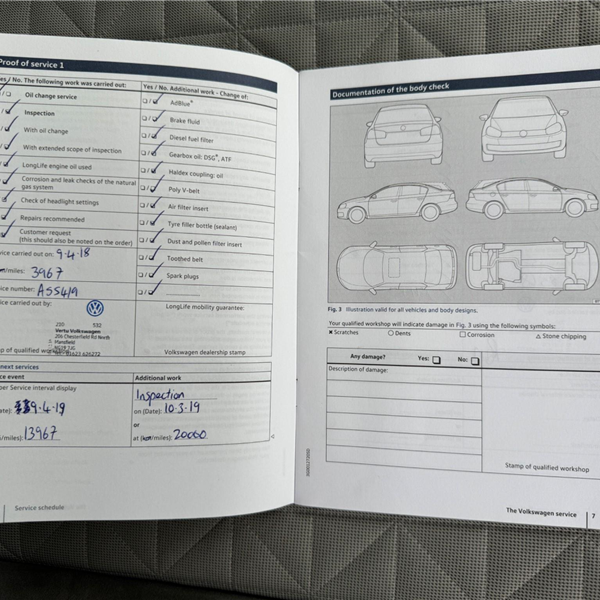 Proof of service 1
es / No. The following work was carried out:
Oil change service
Inspection
With oil change
With extended scope of inspection
LongLife engine oil used
Corrosion and leak checks of the natural
gas system
Check of headlight settings
Repairs recommended
Customer request
(this should also be noted on the order)
vice carried out on: 9.4.18
/miles: 3967
ice number: A55419
ice carried out by:
230 532
Vertu Volkswagen
206 Chesterfield Rd North
Mansfield
NG19 7JC
01623 626272
p of qualified workshop
Yes / No. Additional work - Change of:
AdBlue®
Brake fluid
Diesel fuel filter
Gearbox oil: DSG®, ATF
Haldex coupling: oil
Poly V-belt
Air filter insert
Tyre filler bottle (sealant)
Dust and pollen filter insert
Toothed belt
Spark plugs
LongLife mobility guarantee:
Volkswagen dealership stamp
next services
ce event
per Service interval display
ate): 9.4.19
/miles): 13967
Additional work
Inspection
on (Date): 10.3.19
or
at (km/miles): 20000
Service schedule
Documentation of the body check
Fig. 3 Illustration valid for all vehicles and body designs.
Your qualified workshop will indicate damage in Fig. 3 using the following symbols:
× Scratches ○ Dents □ Corrosion △ Stone chipping
Any damage? Yes: □ No: □
Description of damage:
Stamp of qualified workshop
The Volkswagen service 7